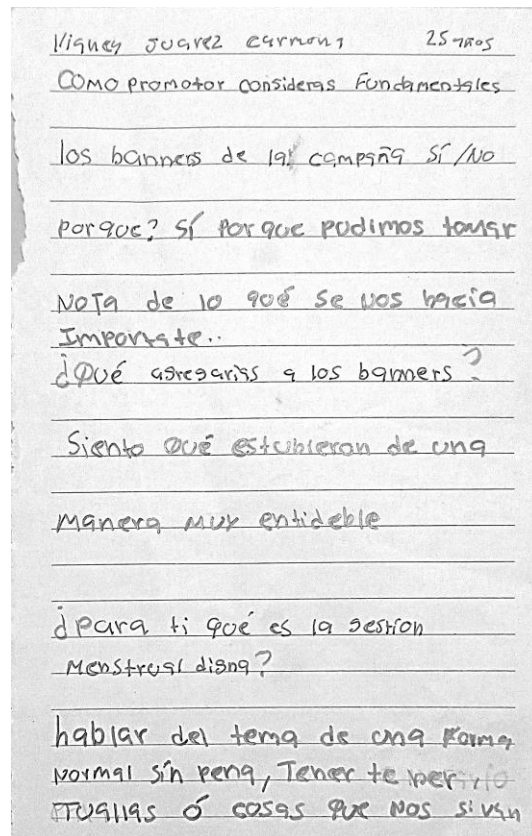 Juarez Carmona 25 años
Como promotor consideras Fundamentales
los banners de la campaña Sí/No
porque? sí Porque pudimos tomar
NOTA de lo qué se nos hacía
Importate..
¿Qué agregarias a los banners?
Siento Qué estubieron de una
manera muy entideble
¿para ti qué es la gestion
menstrual digna?
hablar del tema de una Forma
Normal sín pena, Tener
Tuallas ó cosas que Nos sivan